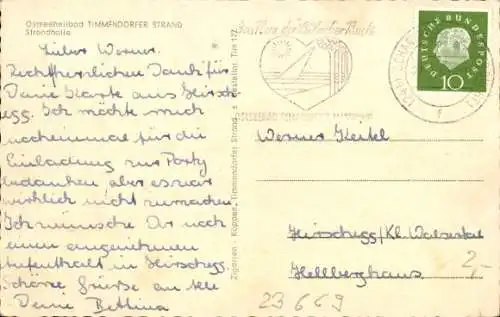 Ostseeheilbad TIMMENDORFER STRAND
Strandhalle
Lieber Werner.
Recht herzlichen Dank für
Deine Karte aus Hirsch-
egg. Ich möchte mich
nocheinmal für die
Einladung zur Party
bedanken, aber es war
wirklich nicht zu machen.
Ich wünsche Dir noch
einen angenehmen
Aufenthalt in Hirschegg.
Schöne Grüße an alle
Deine Bettina
Zigarren - Köpper, Timmendorfer Strand
Bestellnr. Tim 172
DEUTSCHE BUNDESPOST
10
Werner Keitel
Hirschegg/Kl. Walsertal
Hellberghaus
2,-
23669